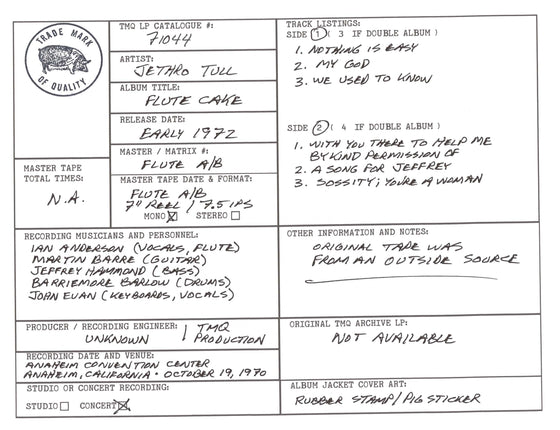 TRADE MARK
OF QUALITY
TMQ LP CATALOGUE #:
71044
ARTIST:
JETHRO TULL
ALBUM TITLE:
FLUTE CAKE
RELEASE DATE:
EARLY 1972
MASTER / MATRIX #:
FLUTE A/B
MASTER TAPE
TOTAL TIMES:
N.A.
MASTER TAPE DATE & FORMAT:
FLUTE A/B
7" REEL / 7.5 IPS
MONO STEREO
TRACK LISTINGS:
SIDE 1 ( 3 IF DOUBLE ALBUM )
1. NOTHING IS EASY
2. MY GOD
3. WE USED TO KNOW
SIDE 2 ( 4 IF DOUBLE ALBUM )
1. WITH YOU THERE TO HELP ME
BY KIND PERMISSION OF
2. A SONG FOR JEFFREY
3. SOSSITY; YOU'RE A WOMAN
RECORDING MUSICIANS AND PERSONNEL:
IAN ANDERSON (VOCALS, FLUTE)
MARTIN BARRE (GUITAR)
JEFFREY HAMMOND (BASS)
BARRIEMORE BARLOW (DRUMS)
JOHN EVAN (KEYBOARDS, VOCALS)
OTHER INFORMATION AND NOTES:
ORIGINAL TAPE WAS
FROM AN OUTSIDE SOURCE
PRODUCER / RECORDING ENGINEER:
UNKNOWN / TMQ PRODUCTION
ORIGINAL TMQ ARCHIVE LP:
NOT AVAILABLE
RECORDING DATE AND VENUE:
ANAHEIM CONVENTION CENTER
ANAHEIM, CALIFORNIA · OCTOBER 19, 1970
STUDIO OR CONCERT RECORDING:
STUDIO CONCERT
ALBUM JACKET COVER ART:
RUBBER STAMP/PIG STICKER